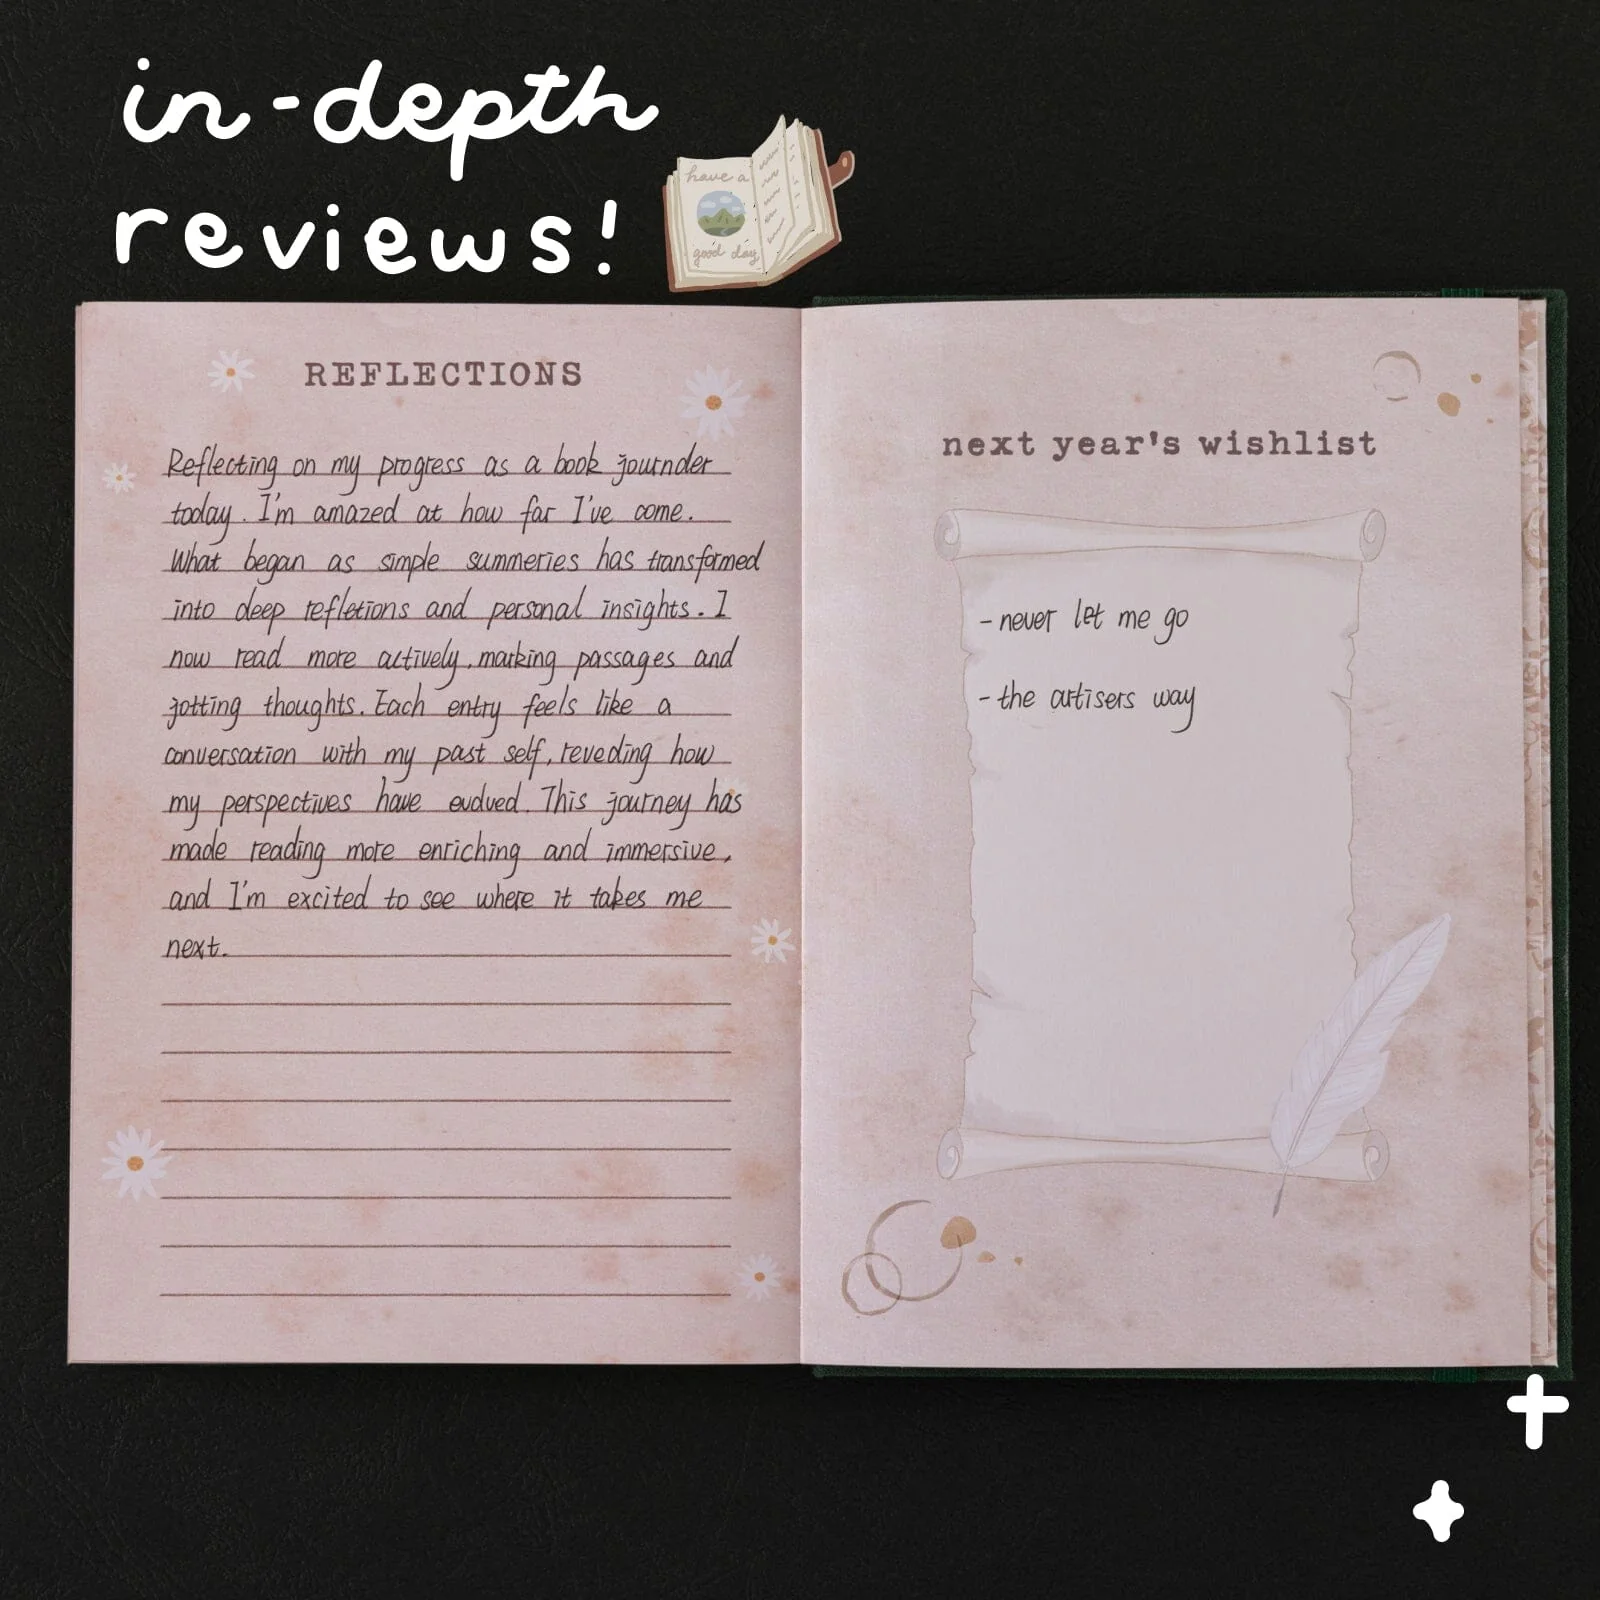 in-depth
reviews!
have a
good day
REFLECTIONS
Reflecting on my progress as a book journder
today. I'm amazed at how far I've come.
What began as simple summeries has transformed
into deep refletions and personal insights. I
now read more actively, marking passages and
jotting thoughts. Each entry feels like a
conversation with my past self, reveding how
my perspectives have evdved. This journey has
made reading more enriching and immersive,
and I'm excited to see where it takes me
next.
next year's wishlist
- never let me go
- the artisers way